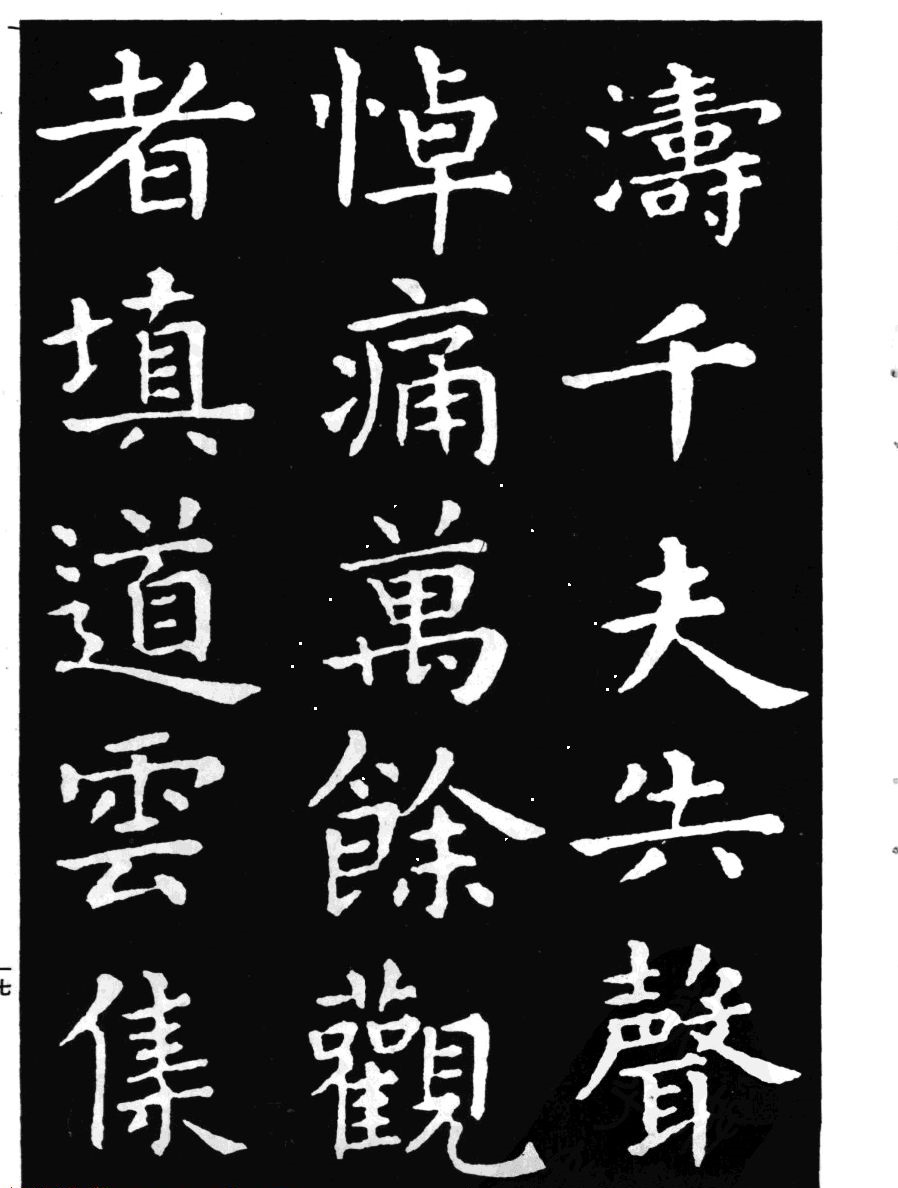 濤千夫共聲
悼痛萬餘觀
者填道雲集